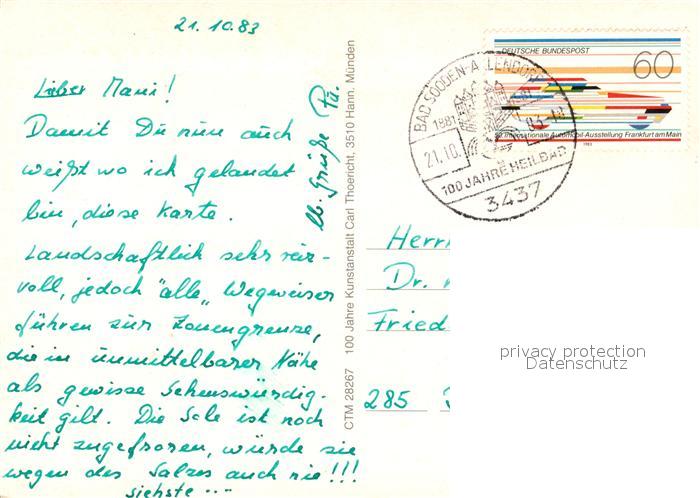 21.10.83
Lieber Mani!
Damit Du nun auch
weißt wo ich gelandet
bin, diese Karte.
Landschaftlich sehr reiz-
voll, jedoch "alle" Wegweiser
führen zur Zonengrenze,
die in unmittelbarer Nähe
als gewisse Sehenswürdig-
keit gilt. Die Sole ist noch
nicht zugefroren, würde sie
wegen des Salzes auch nie!!!
siehste ...
lb. Grüße
CTM 28267 100 Jahre Kunstanstalt Carl Thoericht, 3510 Hann. Münden
DEUTSCHE BUNDESPOST
60
50. Internationale Automobil-Ausstellung Frankfurt am Main
1983
BAD SOODEN-ALLENDORF
1881
21.10.
83-18
100 JAHRE HEILBAD
3437
Herrn
Dr.
Fried
285
privacy protection
Datenschutz